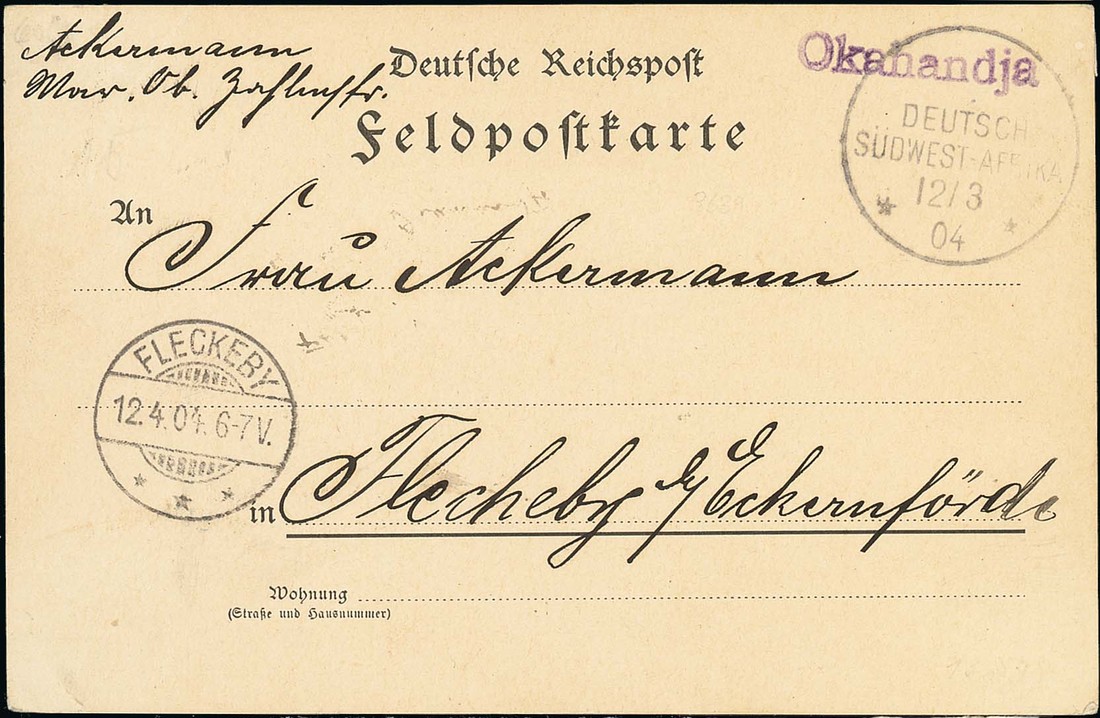 Ackermann
Mar. Ob. Zahlmstr.
Deutsche Reichspost
Feldpostkarte
Okahandja
DEUTSCH
SÜDWEST-AFRIKA
12/3
04
An Frau Ackermann
FLECKEBY
12.4.04. 6-7V.
in Fleckeby b/ Eckernförde
Wohnung
(Straße und Hausnummer)